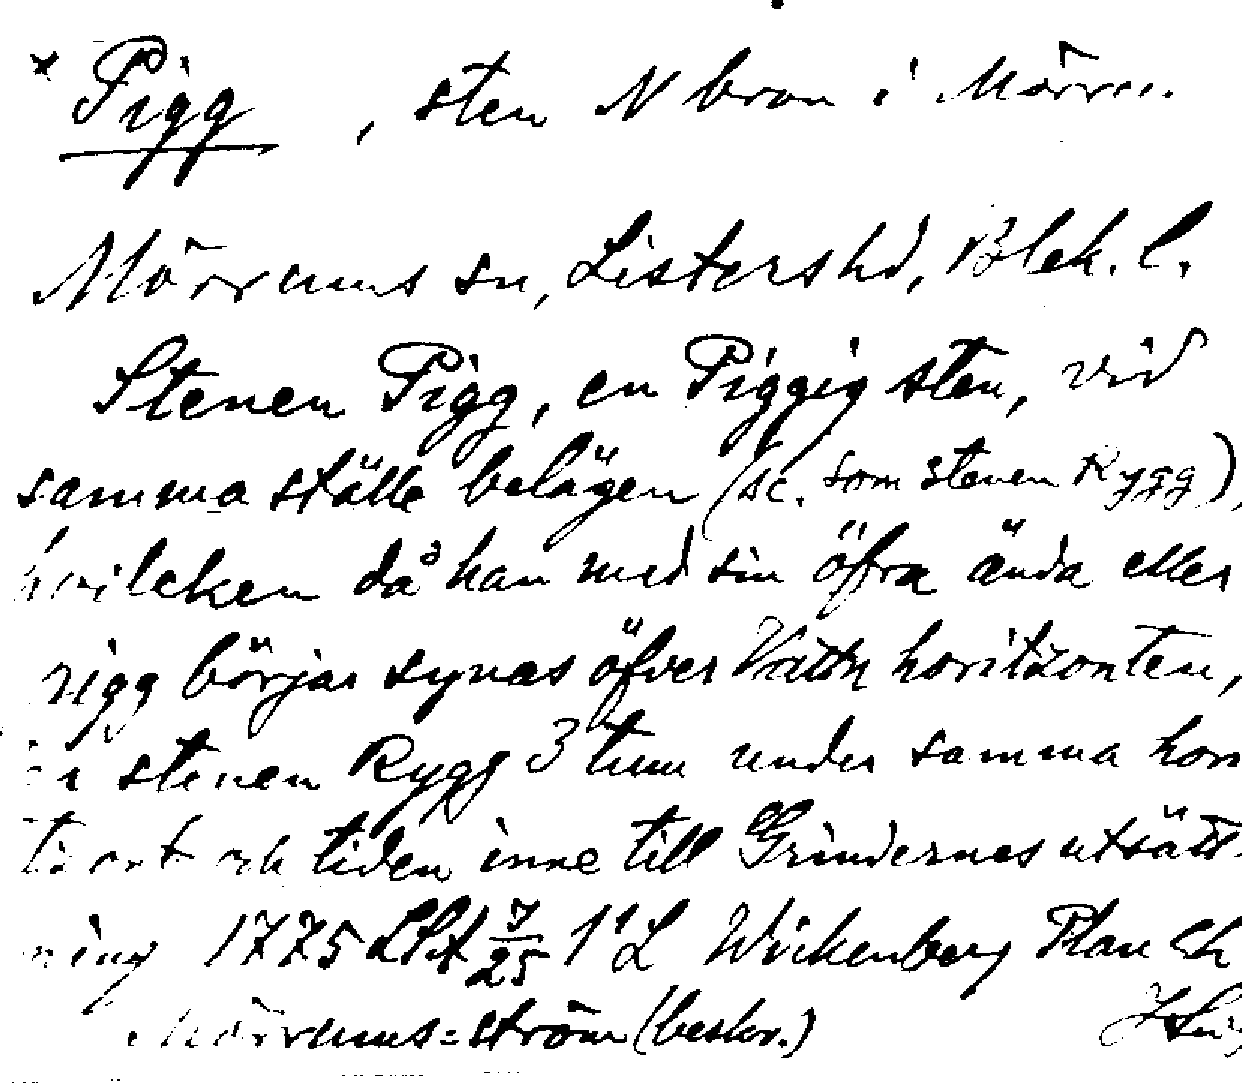 × Pigg, sten N bron i Mörrum.
Mörrums sn, Listers hd, Blek. l.
Stenen Pigg, en Piggig sten, vid
samma ställe belägen (sc. som stenen Rygg),
hvilcken då han med sin öfra ända eller
rigg börjar synas öfver horitzonten,
är stenen Rygg 3 tum under samma hori
tzont och tiden inne till Grindernes utsätt-
ning 1775 7/25 Wickenberg Plan Ch
Mörrums=ström (beskr.)